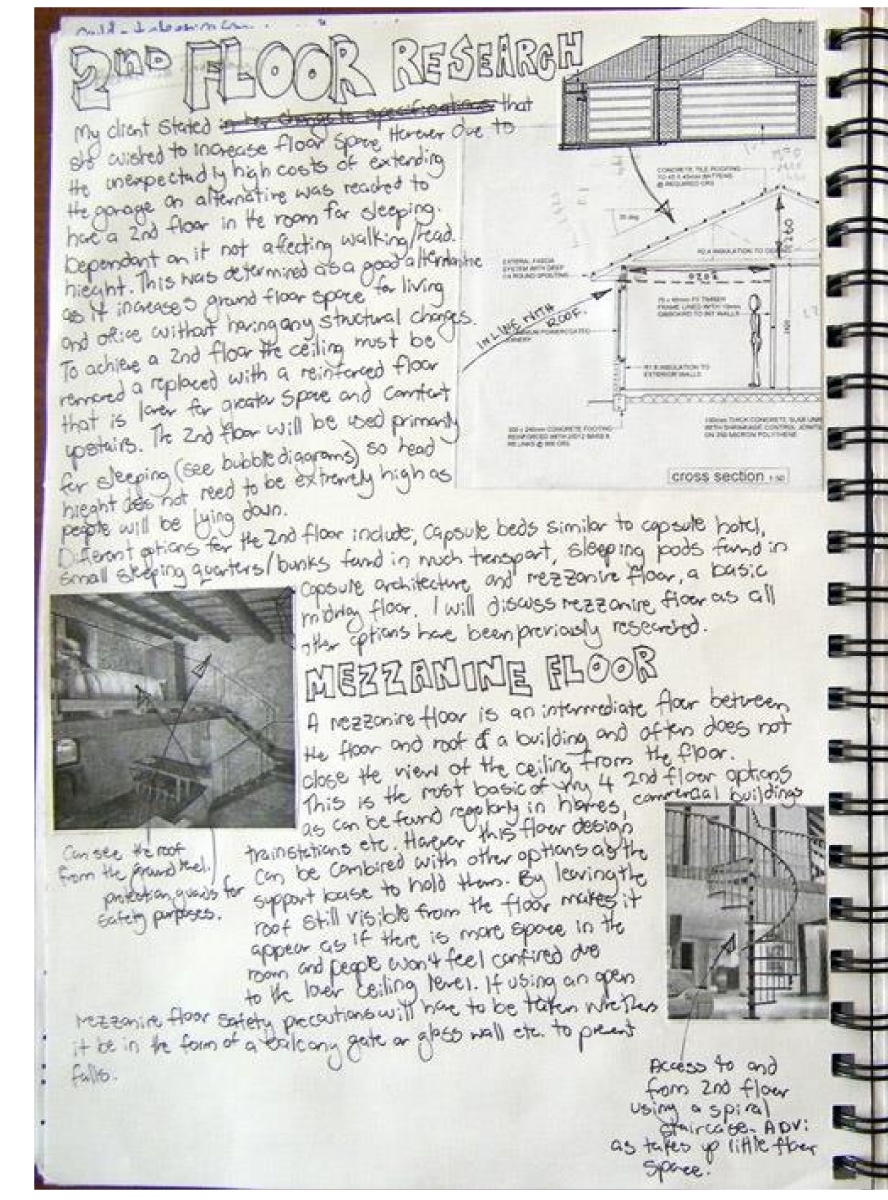 2ND FLOOR RESEARCH
My client stated in her change to specifications that
she wished to increase floor space. However due to
the unexpectedly high costs of extending
the garage an alternative was reached to
have a 2nd floor in the room for sleeping.
Dependant on it not affecting walking/head
hieght. This was determined as a good alternative
as it increases ground floor space for living
and office without having any structural changes.
To achieve a 2nd floor the ceiling must be
removed a replaced with a reinforced floor
that is lower for greater space and comfort
upstairs. The 2nd floor will be used primarily
for sleeping (see bubble diagrams) so head
hieght does not need to be extremely high as
people will be lying down.
Different options for the 2nd floor include; Capsule beds similar to capsule hotel,
small sleeping quarters/bunks found in much transport, sleeping pods found in
capsule architecture and mezzanine floor, a basic
midway floor. I will discuss mezzanine floor as all
other options have been previously researched.
CONCRETE TILE ROOFING
@ REQUIRED CRS
EXTERIOR WALLS
IN LINE WITH
ROOF.
2020
cross section 1:50
MEZZANINE FLOOR
A mezzanine floor is an intermediate floor between
the floor and roof of a building and often does not
close the view of the ceiling from the floor.
This is the most basic of my 4 2nd floor options
as can be found regularly in homes, commercial buildings
trainstations etc. However this floor design
can be combined with other options as the
support base to hold them. By leaving the
roof still visible from the floor makes it
appear as if there is more space in the
room and people won't feel confined due
to the lower ceiling level. If using an open
mezzanine floor safety precautions will have to be taken whether
it be in the form of a balcany gate or glass wall etc. to prevent
falls.
Can see the roof
from the ground level.
protection guards for
safety purposes.
Access to and
from 2nd floor
using a spiral
staircase. ADV:
as takes up little floor
space.